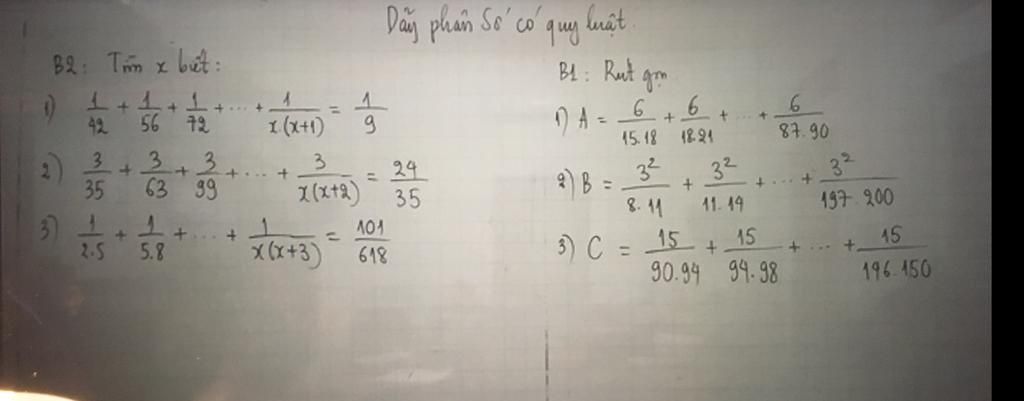 Dãy phân số có quy luật.
B2: Tìm x biết:
1) 1/42 + 1/56 + 1/72 + ... + 1/x.(x+1) = 1/9
2) 3/35 + 3/63 + 3/99 + ... + 3/x(x+2) = 24/35
3) 1/2.5 + 1/5.8 + ... + 1/x(x+3) = 101/618
B1: Rút gọn
1) A = 6/15.18 + 6/18.21 + ... + 6/87.90
2) B = 3²/8.11 + 3²/11.14 + ... + 3²/197.200
3) C = 15/90.94 + 15/94.98 + ... + 15/146.150